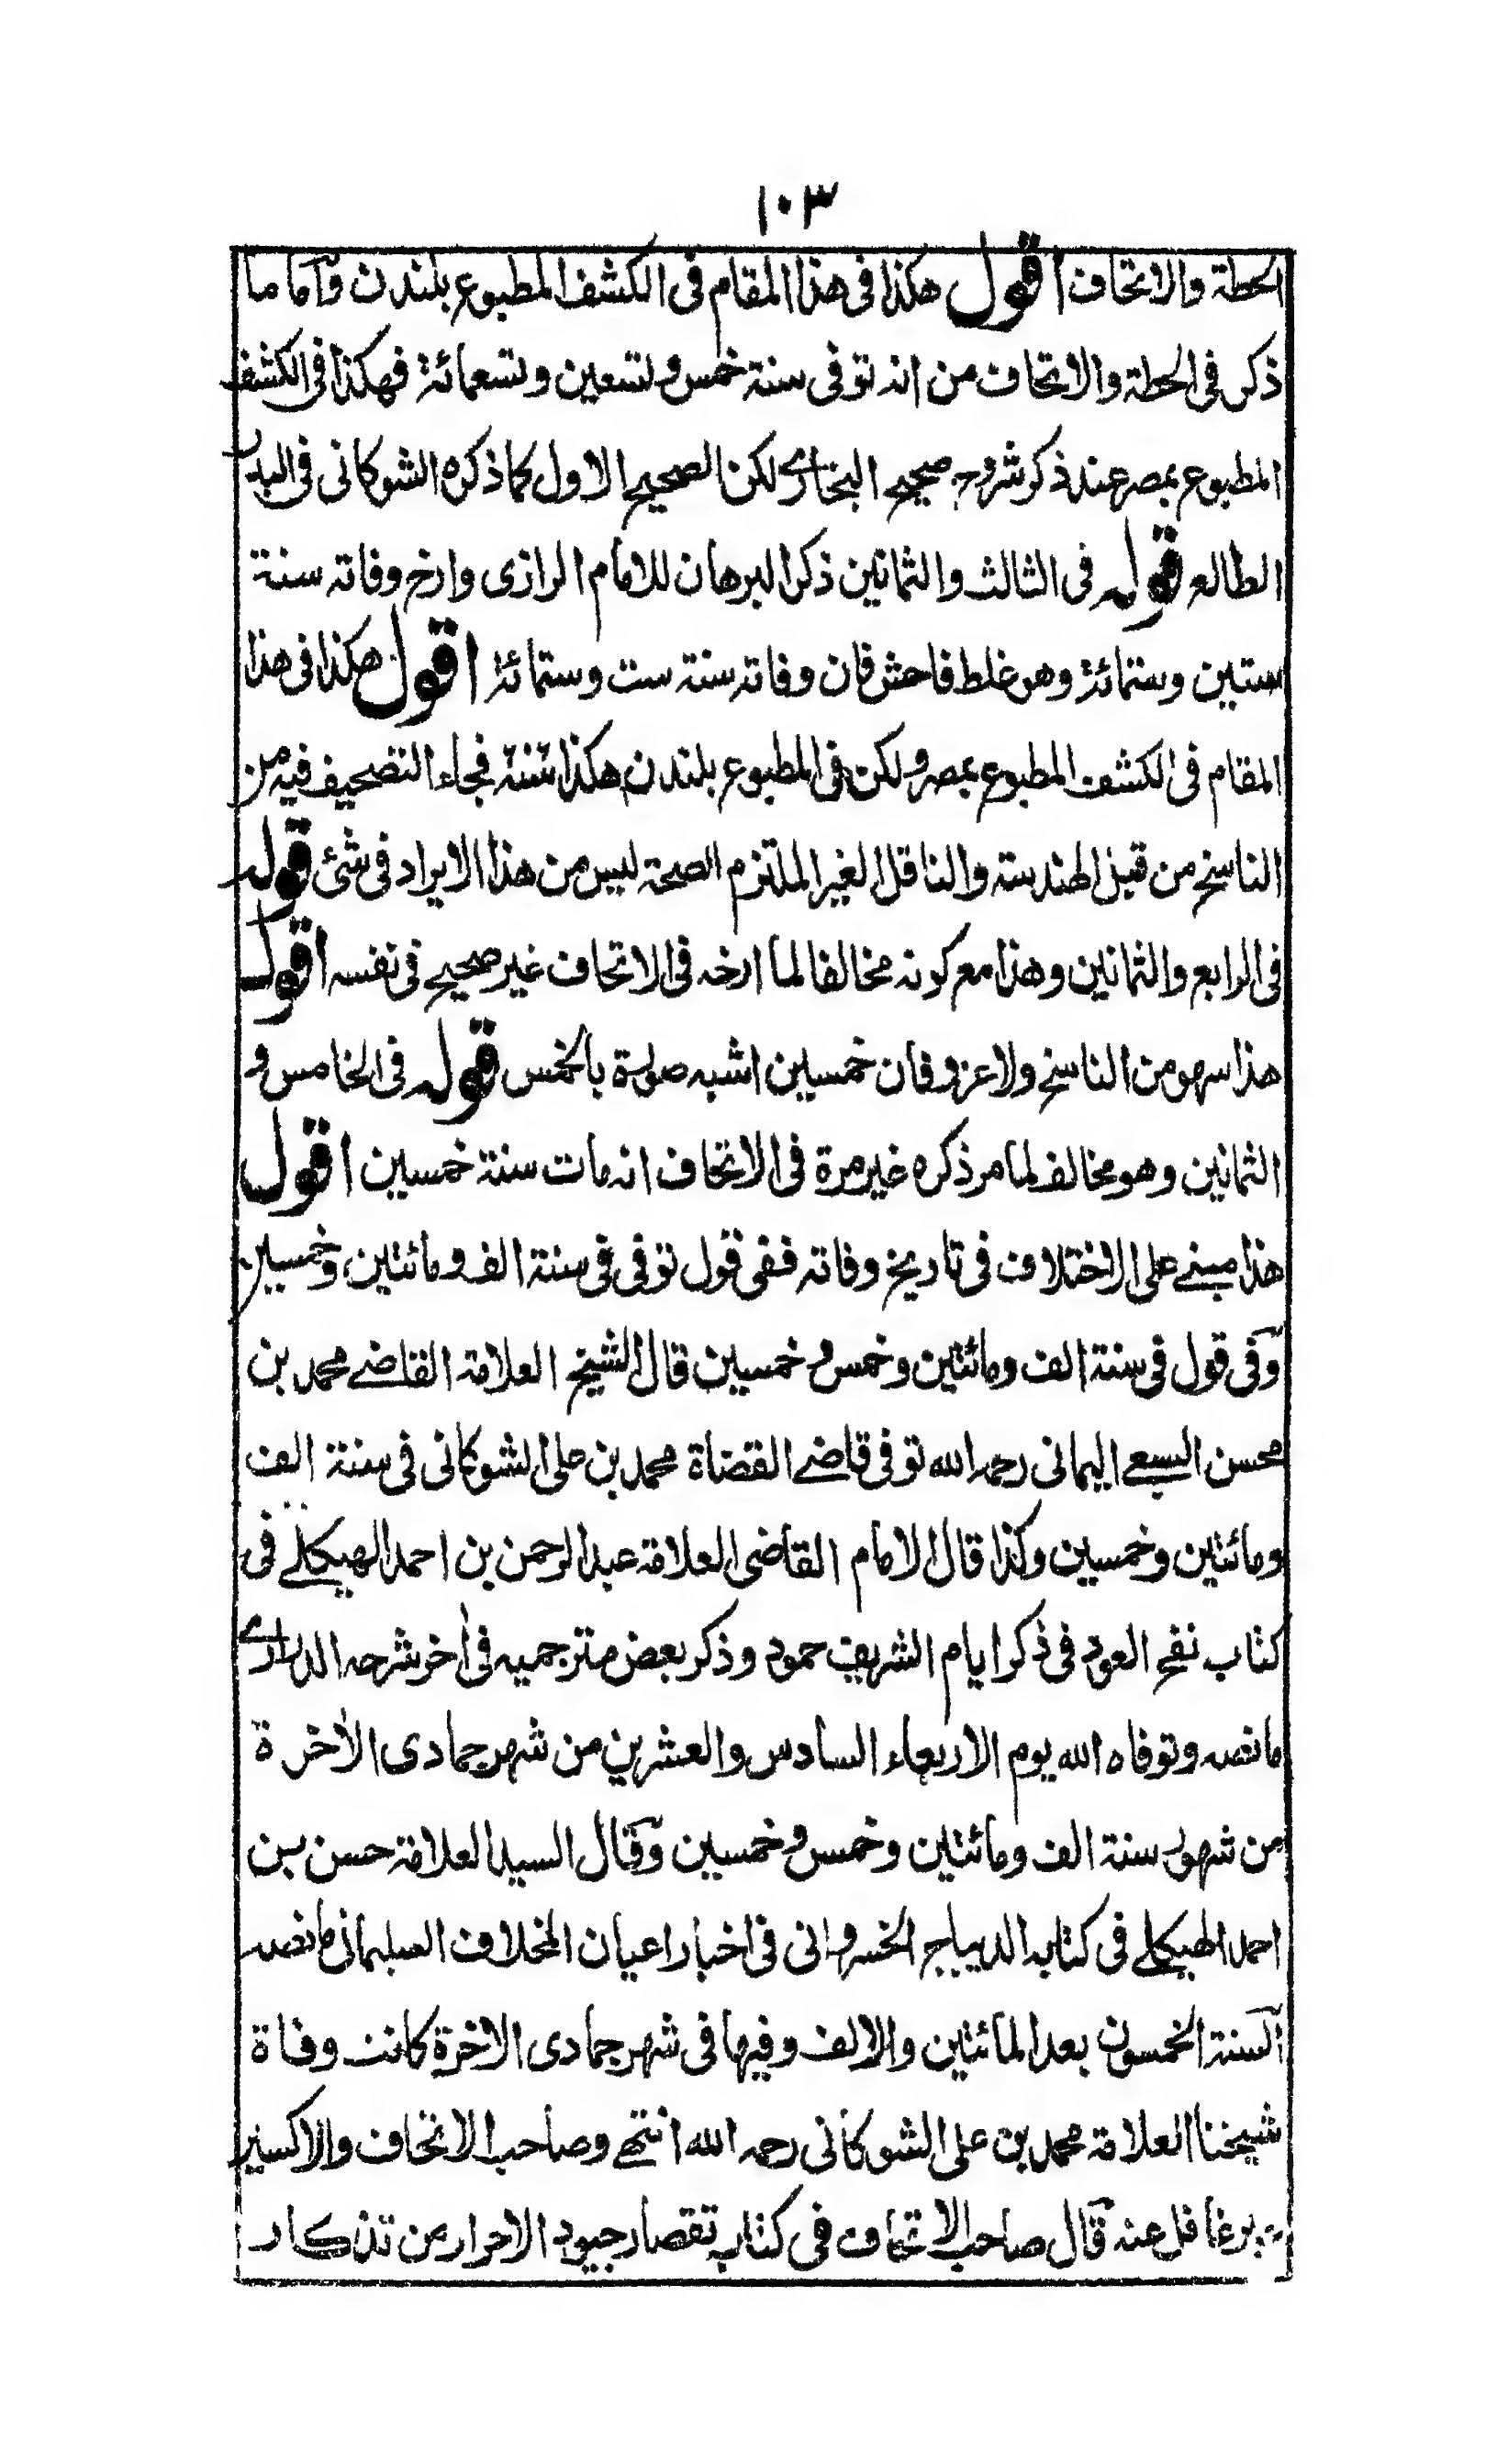 ١٠٣
الحطة والاتحاف اقول هكذا فى هذا المقام فى الكشف المطبوع بلندن وآما ما
ذكر فى الحطة والاتحاف من انه توفى سنة خمس وتسعين وتسعمائة فهكذا فى الكشف
المطبوع بمصر عند ذكر شروح صحيح البخارے لكن الصحيح الاول كما ذكره الشوكانى فى البدر
الطالع قوله فى الثالث والثمانين ذكر البرهان للامام الرازى وارخ وفاته سنة
ستين وستمائة وهو غلط فاحش فان وفاته سنة ست وستمائة اقول هكذا فى هذا
المقام فى الكشف المطبوع بمصر ولكن فى المطبوع بلندن هكذا سنة فجاء التصحيف فيه من
الناسخ من قبل الهندسة والناقل الغير الملتزم الصحة ليس من هذا الايراد فى شئ قوله
فى الرابع والثمانين وهذا مع كونه مخالفا لما ارخه فى الاتحاف غير صحيح فى نفسه اقول
هذا سهو من الناسخ ولا عزو فان خمسين اشبه صورة بالخمس قوله فى الخامس و
الثمانين وهو مخالف لما مر ذكره غير مرة فى الاتحاف انه مات سنة خمسين اقول
هذا مبنے على الاختلاف فى تاريخ وفاته ففى قول توفى فى سنة الف ومائتين وخمسين
وفى قول فى سنة الف ومائتين وخمس وخمسين قال الشيخ العلامة القاضے محمد بن
محسن السبعے اليمانى رحمه الله توفى قاضے القضاة محمد بن على الشوكانى فى سنة الف
ومائتين وخمسين وكذا قال الامام القاضى العلامة عبد الرحمن بن احمد الهيكلے فى
كتاب نفح العود فى ذكر ايام الشريف حمود وذكر بعض مترجميه فى آخر شرحه الدرارے
ما نصه وتوفاه الله يوم الاربعاء السادس والعشرين من شهر جمادى الآخرة
من شهور سنة الف ومائتين وخمس وخمسين وقال السيد العلامة حسن بن
احمد الهيكلے فى كتابه الديباج الخسروانى فى اخبار اعيان المخلاف السليمانى ما نصه
السنة الخمسون بعد المائتين والالف وفيها فى شهر جمادى الاخرة كانت وفاة
شيخنا العلامة محمد بن على الشوكانى رحمه الله انتهے وصاحب الاتحاف والاكسير
غير غافل عنه قال صاحب الاتحاف فى كتابه تقصار جيود الاحرار من تذكار